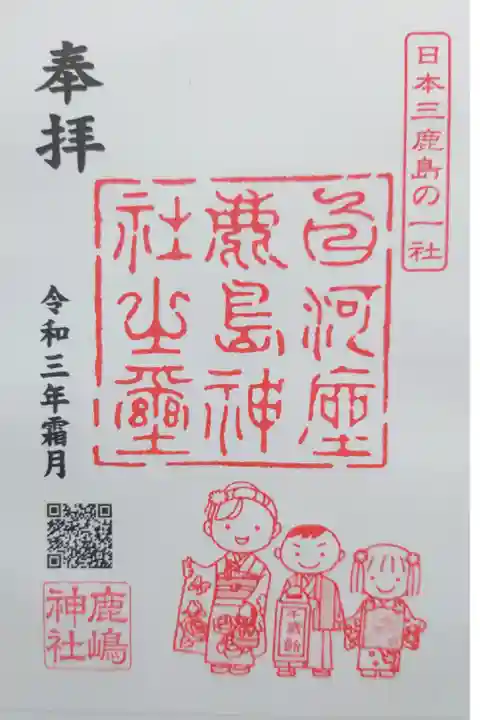 日本三鹿島の一社
奉拝
白河座
鹿島神
社之璽
令和三年霜月
千歳飴
鹿嶋
神社